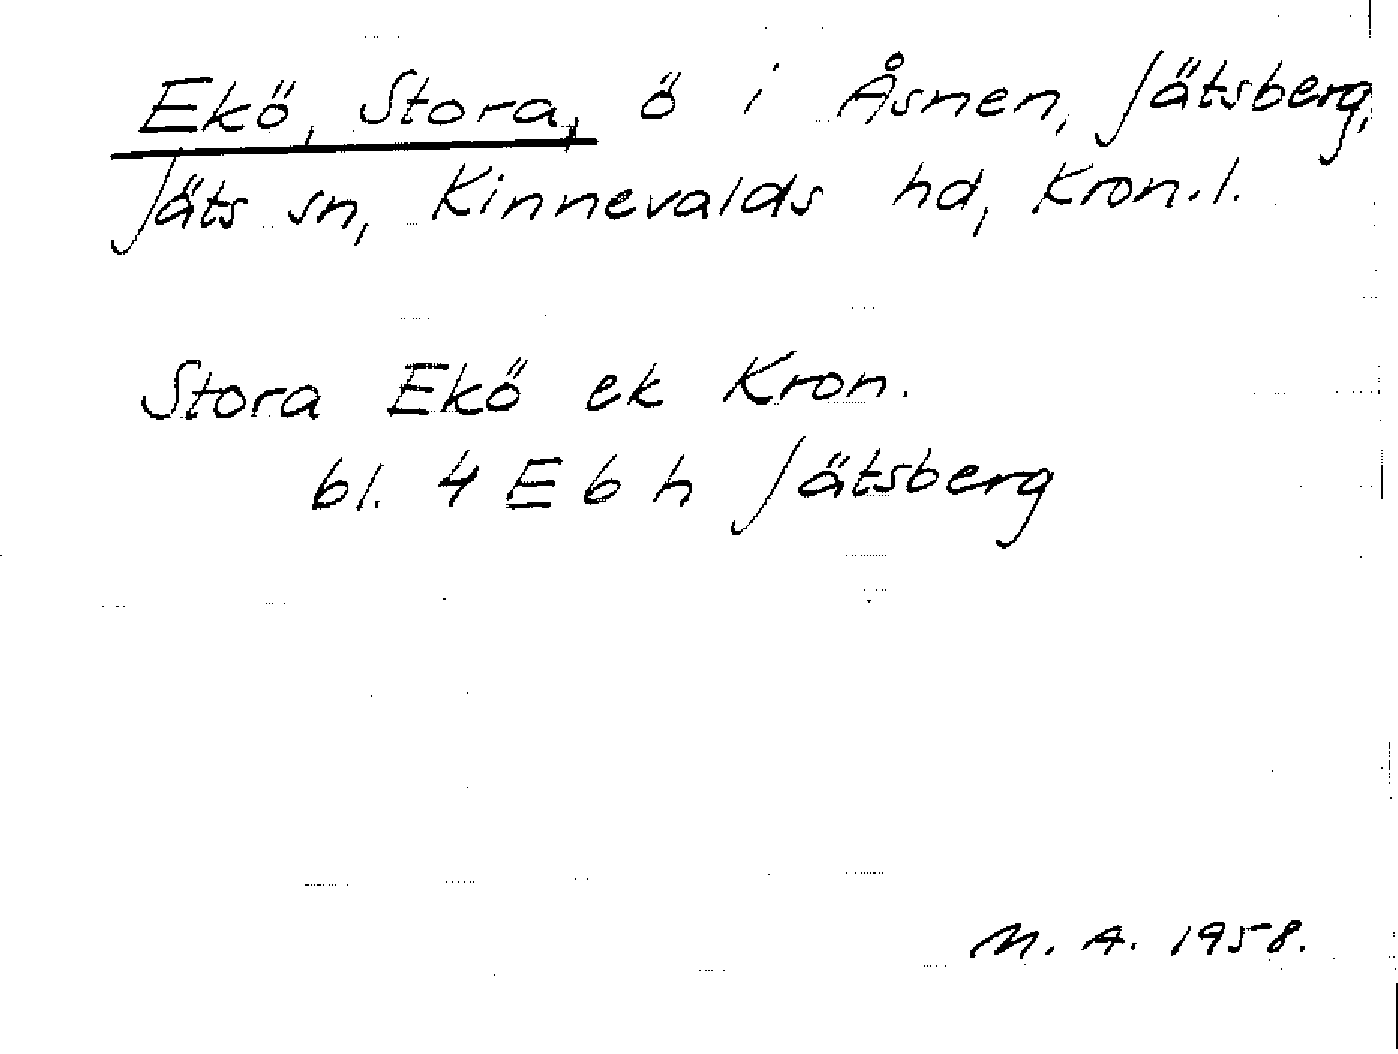 Ekö, Stora, ö i Åsnen, Jätsberg,
Jäts sn, Kinnevalds hd, Kron.l.
Stora Ekö ek Kron.
bl. 4 E 6 h Jätsberg
M. A. 1958.